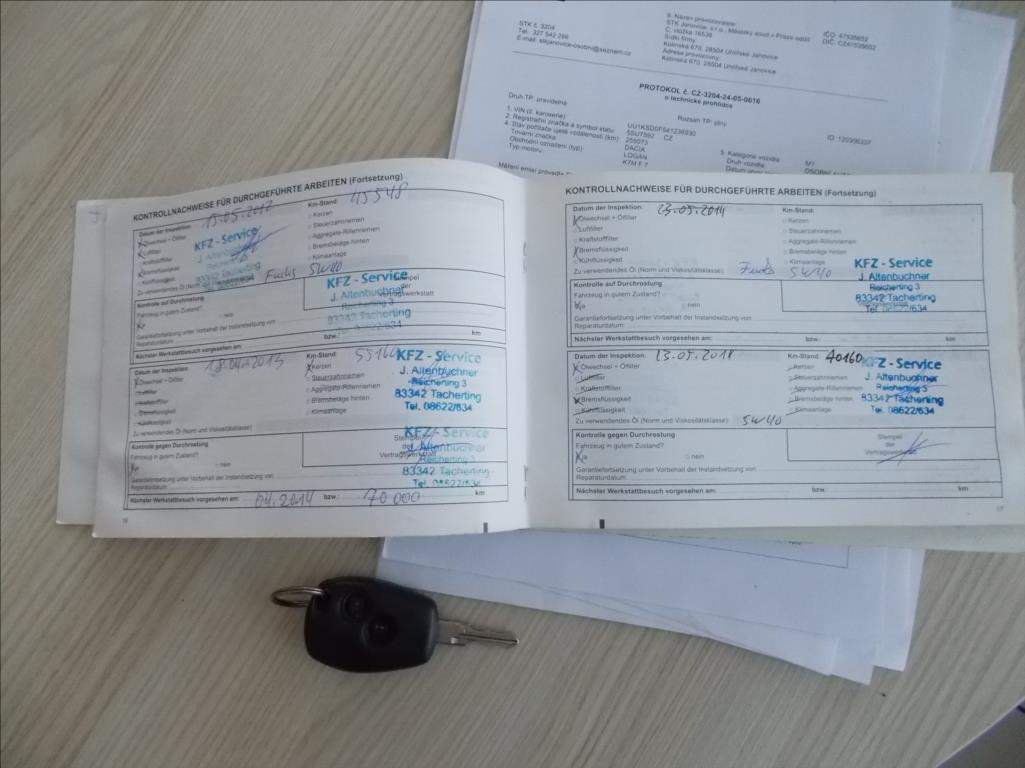 STK č. 3204
Tel. 327 542 266
E-mail:
STK Janovice s.r.o., Městský soud v Praze oddíl
C, vložka 16539
Sídlo firmy
Kolínská 670, 28504 Uhlířské Janovice
Adresa provozovny:
Kolínská 670, 28504 Uhlířské Janovice
PROTOKOL č. CZ-3204-24-05-0616
o technické prohlídce
Druh TP: pravidelná
Rozsah TP: plný
1. VIN (č. karoserie)
2. Registrační značka a symbol státu CZ
4. Stav počítače ujeté vzdálenosti (km) 255073
Tovární značka DACIA
Obchodní označení (typ) LOGAN
Typ motoru: K7M F 7
5. Kategorie vozidla M1
Druh vozidla
KONTROLLNACHWEISE FÜR DURCHGEFÜHRTE ARBEITEN (Fortsetzung)
Datum der Inspektion: 15.05.2012 Km-Stand: 45548
Ölwechsel + Ölfilter Kerzen
Luftfilter Steuerzahnriemen
Kraftstofffilter Aggregate-Rillenriemen
Bremsflüssigkeit Bremsbeläge hinten
Kühlflüssigkeit Klimaanlage
KFZ - Service
Zu verwendendes Öl (Norm und Viskositätsklasse): Fuchs 5W40
Kontrolle auf Durchrostung
Fahrzeug in gutem Zustand?
ja nein
Stempel
der
Vertragswerkstatt
KFZ - Service
J. Altenbuchner
Reicherting 3
83342 Tacherting
Tel. 08622/634
Garantiefortsetzung unter Vorbehalt der Instandsetzung von
Reparaturdatum:
Nächster Werkstattbesuch vorgesehen am: bzw.: km
Datum der Inspektion: 18.04.2013 Km-Stand: 55160
Ölwechsel + Ölfilter Kerzen
Luftfilter Steuerzahnriemen
Kraftstofffilter Aggregate-Rillenriemen
Bremsflüssigkeit Bremsbeläge hinten
Kühlflüssigkeit Klimaanlage
KFZ - Service
J. Altenbuchner
Reicherting 3
83342 Tacherting
Tel. 08622/634
Zu verwendendes Öl (Norm und Viskositätsklasse):
Kontrolle gegen Durchrostung
Fahrzeug in gutem Zustand?
ja nein
Stempel
der
Vertragswerkstatt
KFZ - Service
J. Altenbuchner
Reicherting 3
83342 Tacherting
Tel. 08622/634
Garantiefortsetzung unter Vorbehalt der Instandsetzung von
Reparaturdatum:
Nächster Werkstattbesuch vorgesehen am: 04.2014 bzw.: 70000 km
16
KONTROLLNACHWEISE FÜR DURCHGEFÜHRTE ARBEITEN (Fortsetzung)
Datum der Inspektion: 23.05.2014 Km-Stand:
Ölwechsel + Ölfilter Kerzen
Luftfilter Steuerzahnriemen
Kraftstofffilter Aggregate-Rillenriemen
Bremsflüssigkeit Bremsbeläge hinten
Kühlflüssigkeit Klimaanlage
Zu verwendendes Öl (Norm und Viskositätsklasse): Fuchs 5W40
KFZ - Service
J. Altenbuchner
Reicherting 3
83342 Tacherting
Tel. 08622/634
Kontrolle auf Durchrostung
Fahrzeug in gutem Zustand?
ja nein
Garantiefortsetzung unter Vorbehalt der Instandsetzung von
Reparaturdatum:
Nächster Werkstattbesuch vorgesehen am: bzw.: km
Datum der Inspektion: 23.05.2018 Km-Stand: 40160
Ölwechsel + Ölfilter Kerzen
Luftfilter Steuerzahnriemen
Kraftstofffilter Aggregate-Rillenriemen
Bremsflüssigkeit Bremsbeläge hinten
Kühlflüssigkeit Klimaanlage
KFZ - Service
J. Altenbuchner
Reicherting 3
83342 Tacherting
Tel. 08622/634
Zu verwendendes Öl (Norm und Viskositätsklasse): 5W40
Kontrolle gegen Durchrostung
Fahrzeug in gutem Zustand?
ja nein
Stempel
der
Vertragswerkstatt
Garantiefortsetzung unter Vorbehalt der Instandsetzung von
Reparaturdatum:
Nächster Werkstattbesuch vorgesehen am: bzw.: km
17